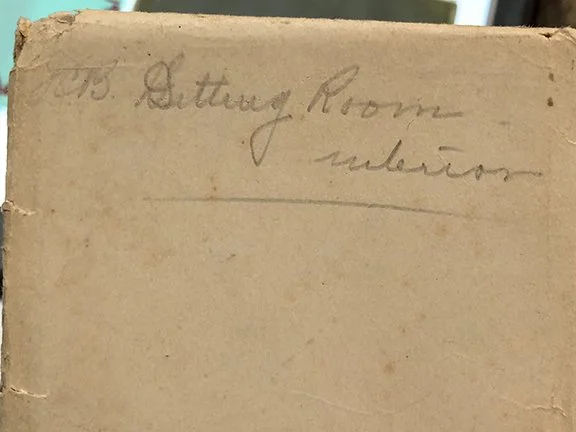 Sitting Room
interior